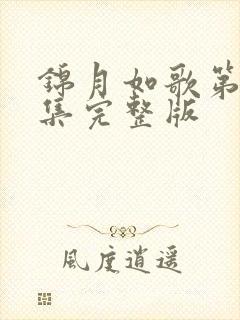 錦月如歌第
集完整版
風度逍遥